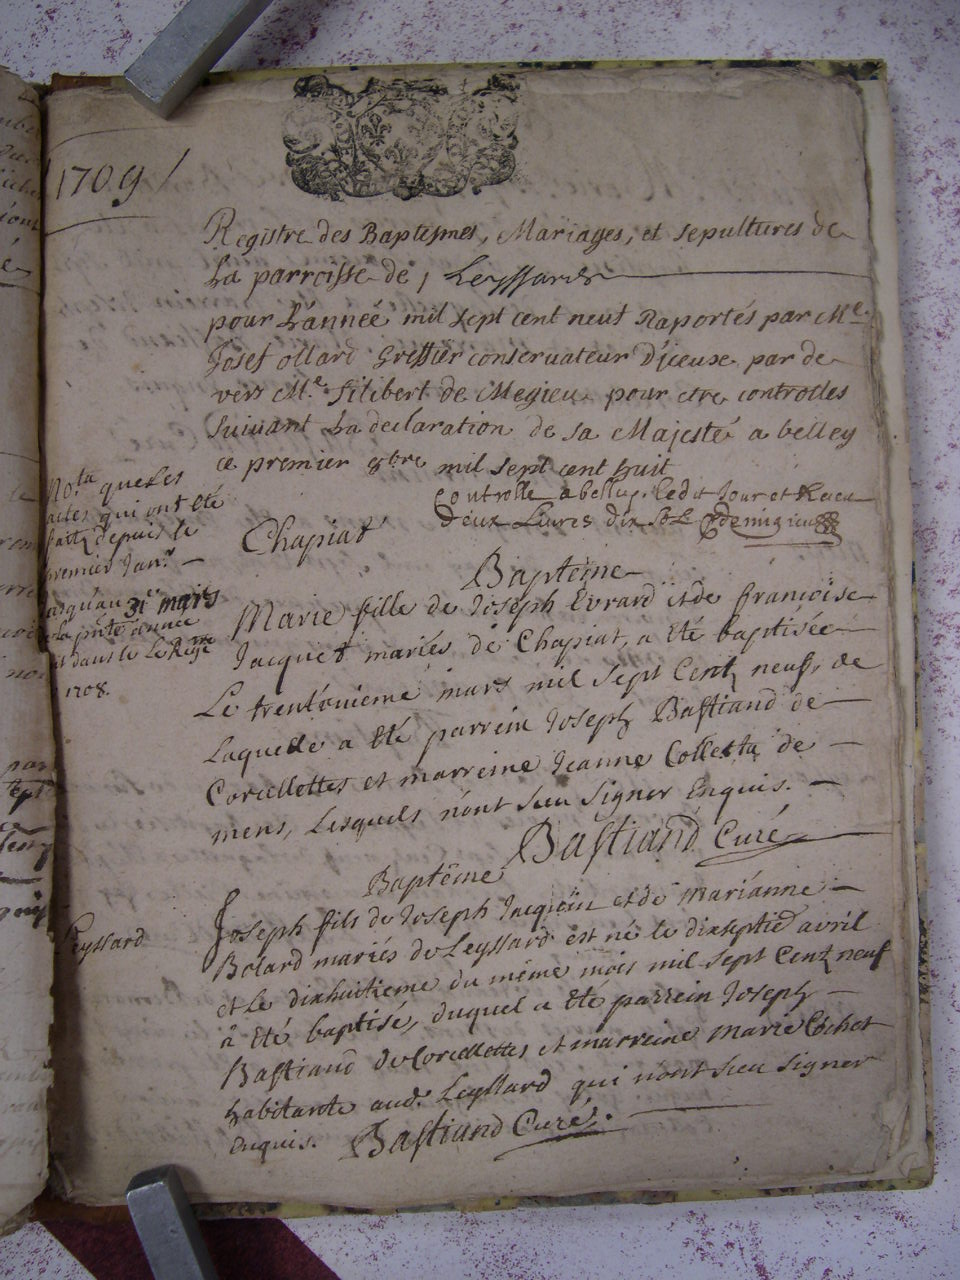 1709
Registre des Baptesmes, Mariages, et sepultures de
La parroisse de, Leyssard
pour L'année mil sept cent neuf Raportés par Me.
Josef ollard Greffier conservateur D'iceux par de
vers Me. filibert de Megieu pour etre controlles
suivant La declaration de sa Majesté a belley
ce premier 8bre mil sept cent huit
controlle a belley ledit Jour et Receu
deux Livres dix sols demigieu
Nota que Les
actes qui ont été
faits depuis le
premier Janr. —
jusqu'au 31e mars
de la pnte année
dans le Regre
1708.
Chapiat
Baptême
Marie fille de Joseph Evrard et de francoise
Jacquet mariés de Chapiat, a été baptisée
Le trentunieme mars mil sept Centz neuf, de
Laquelle a été parrein Joseph Bastiand de
Corcellettes et marreine Jeanne Colletta de
mens, Lesquels n'ont sceu signer Enquis. —
Bastiand Curé
Baptême
Leyssard
Joseph fils de Joseph Jacquin et de marianne
Bolard mariés de Leyssard est né le dixseptie avril
et le dixhuitieme du même mois mil sept Centz neuf
à été baptisé, duquel a été parrein Joseph
Bastiand de Corcellettes et marreine marie Cochet
habitante aud. Leyssard qui n'ont sceu signer
Enquis. Bastiand Curé.